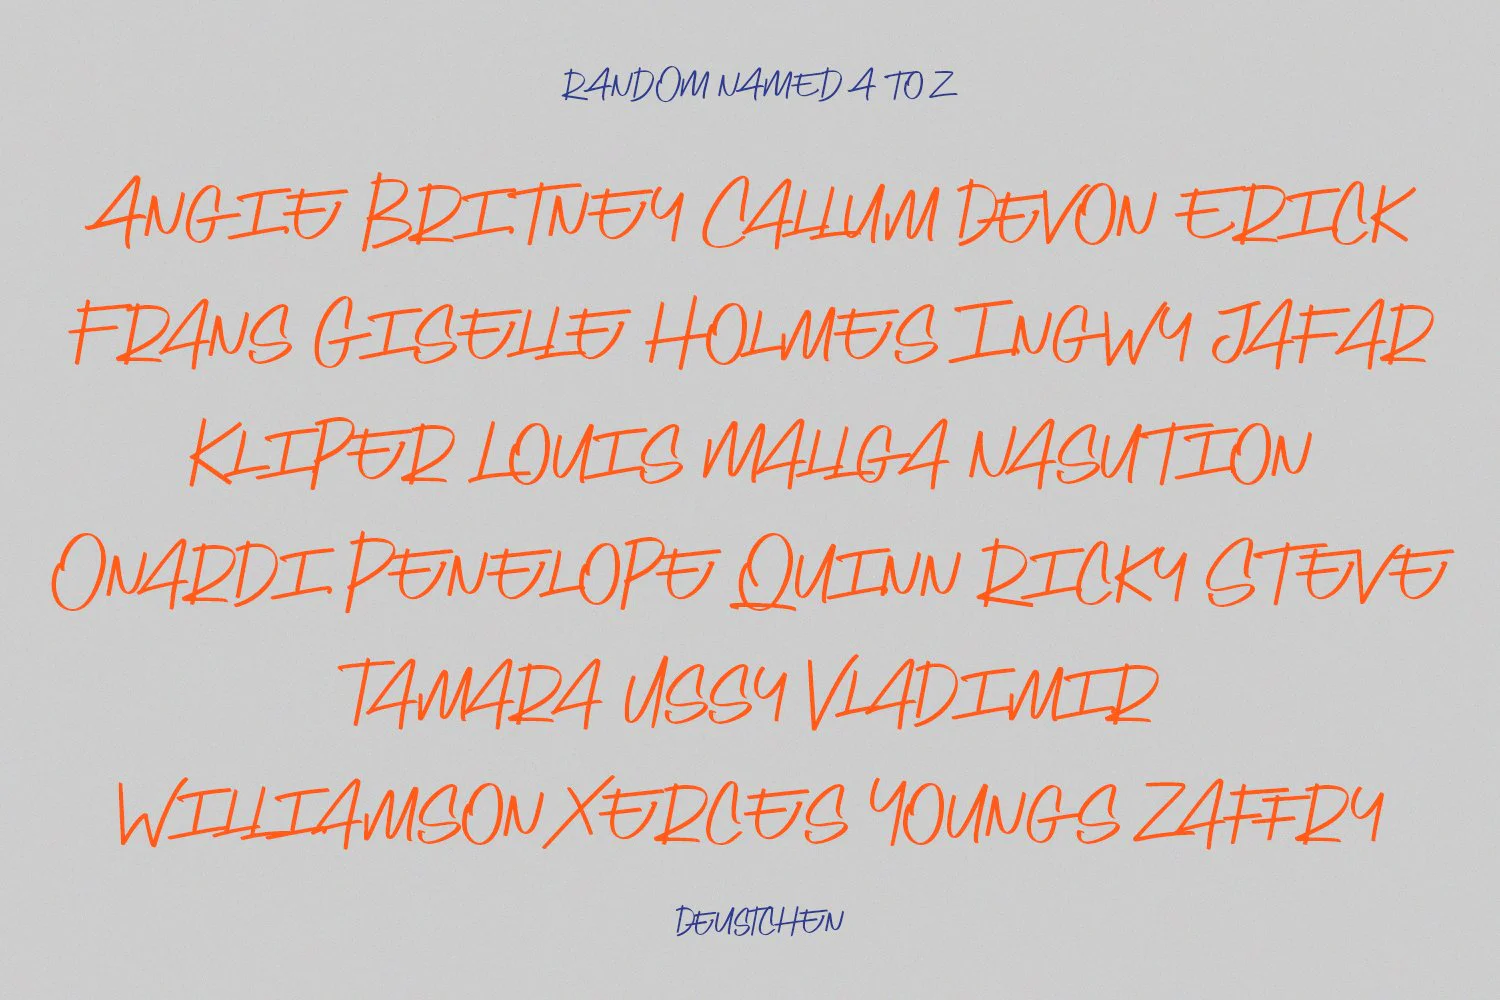 RANDOM NAMED A TO Z
ANGIE BRITNEY CALLUM DEVON ERICK
FRANS GISELLE HOLMES INGWY JAFAR
KLIPER LOUIS MALLGA NASUTION
ONARDI PENELOPE QUINN RICKY STEVE
TAMARA USSY VLADIMIR
WILLIAMSON XERCES YOUNGS ZAFFRY
DEUSTCHEN